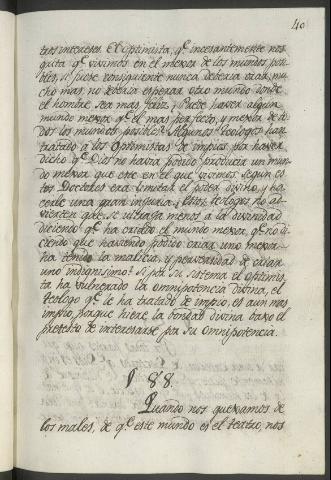 40
tros intereses. El Optimista, q.e incesantemente nos
grita q.e vivimos en el mexor de los mundos posi-
bles, si fuere consiguiente nunca deberia creer, mu-
cho mas no deberia esperar otro mundo donde
el hombre sea mas feliz. ¿Puede haver algun
mundo mexor q.e el mas perfecto, y mexor de to-
dos los mundos posibles? Algunos Teologos han
tratado a los Optimistas de impios por haver
dicho q.e Dios no havia podido producir un mun-
do mexor que este en el que vivimos. Segun es-
tos Doctores era limitar el poder divino, y ha-
cerle una gran injuria. ¿Estos teologos no ad-
vierten que se ultraja menos a la divinidad
diciendo q.e ha criado el mundo mexor, q.e no di-
ciendo que haviendo podido criar uno mexor
ha tenido la malicia, y perversidad de criar
uno indignisimo? Si por su sistema el Optimis-
ta ha vulnerado la omnipotencia divina, el
teologo q.e le ha tratado de impio, es aun mas
impio porque hiere la bondad divina baxo el
pretexto de interesarse por su omnipotencia.
§ 88.
Quando nos quexamos de
los males, de q.e este mundo es el teatro, nos